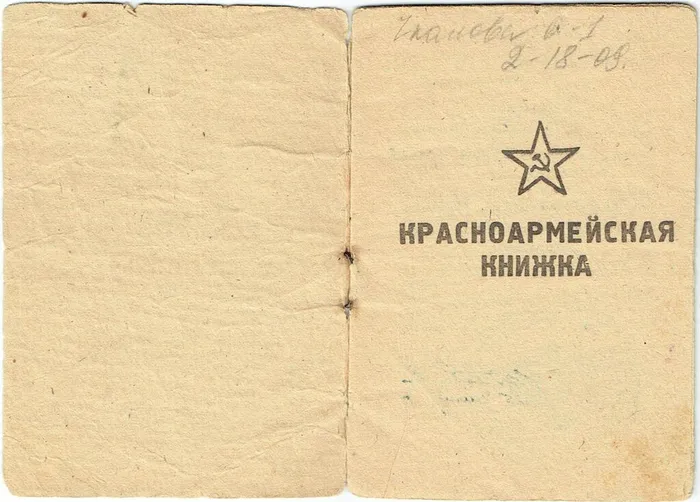 Чкалова 6-1
2-18-09.
КРАСНОАРМЕЙСКАЯ
КНИЖКА